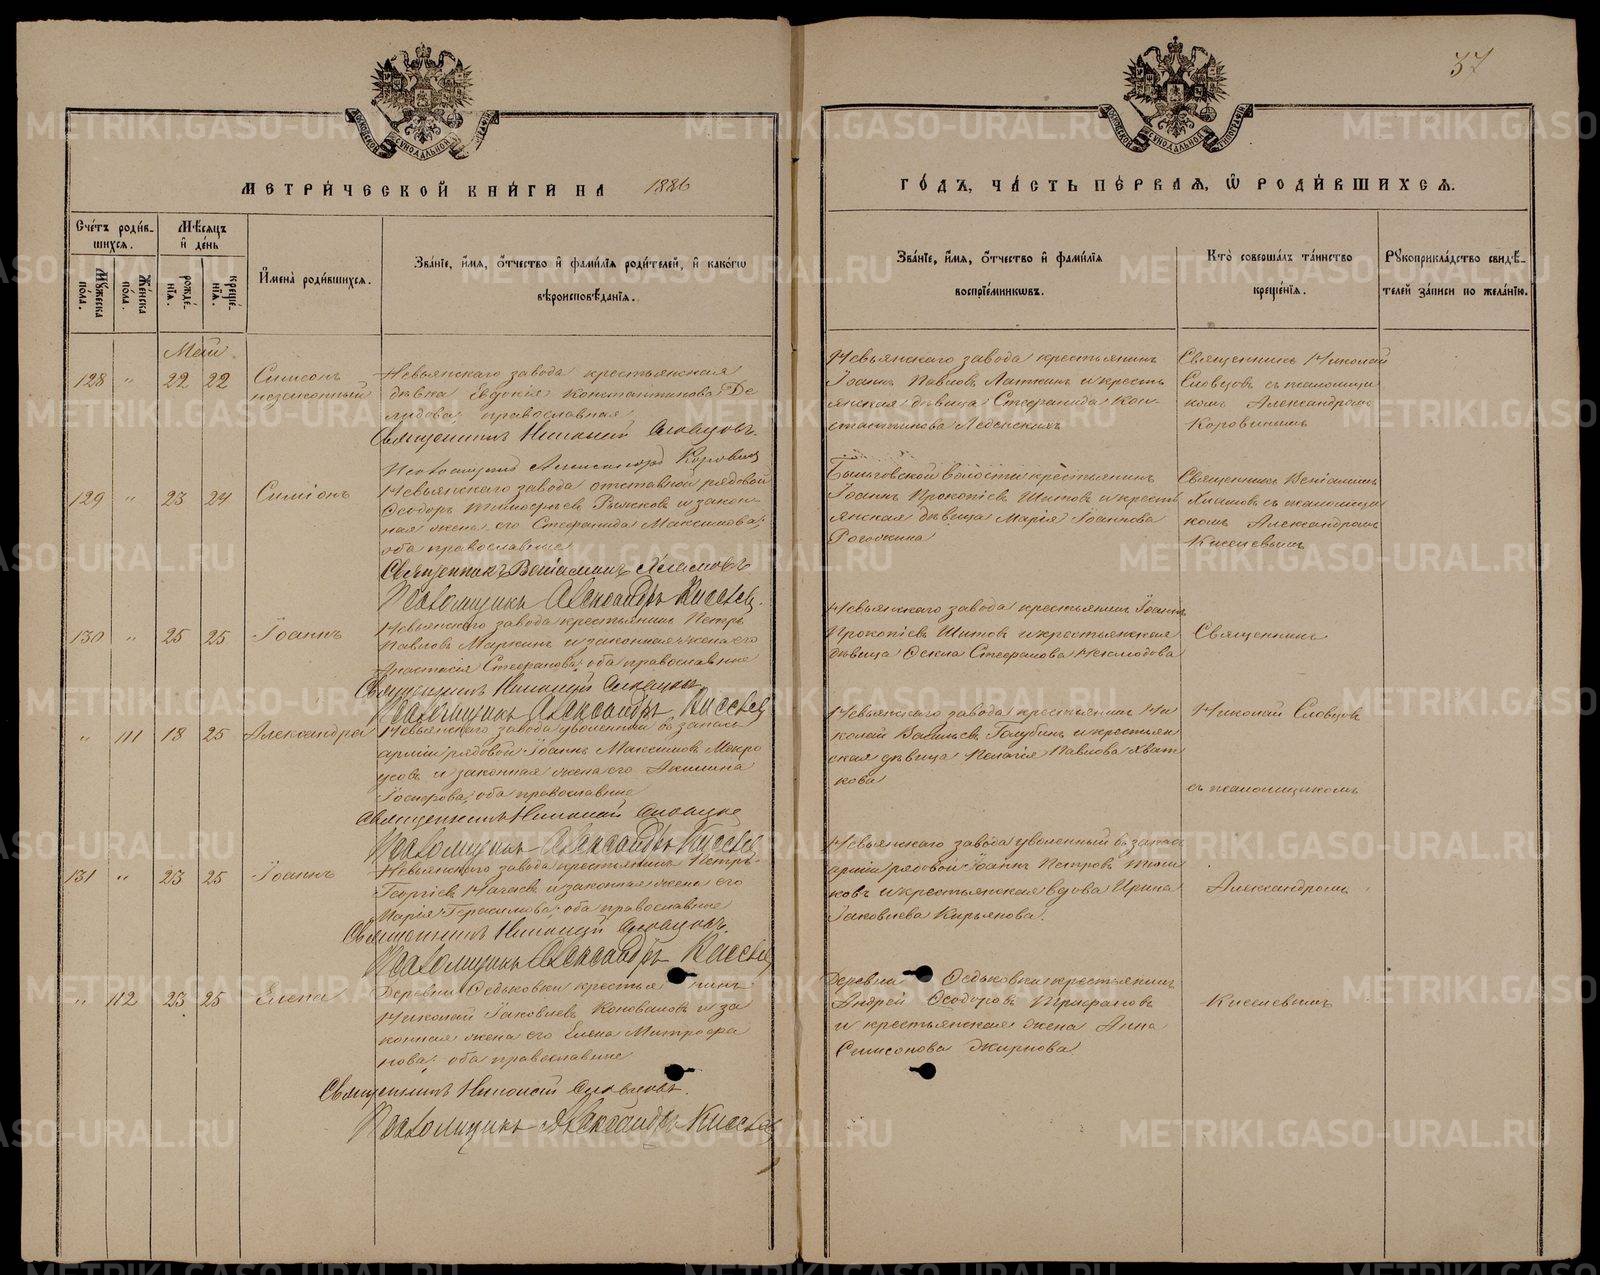 37
МЕТРИ́ЧЕСКОЙ КНИ́ГИ НА 1886
ГО́ДЪ, ЧА́СТЬ ПЕ́РВАѦ, Ѿ РОДИ́ВШИХСѦ.
Сче́тъ роди́в-
шихся.
Мѣ́сяцъ
и҆ де́нь
Мꙋ́жеска по́ла.
Же́нска по́ла.
рожде́-
нїѧ.
креще́-
нїѧ.
И҆мена̀ роди́вшихся.
Зва́нїе, и҆́мѧ, ѻ҆́тчество и҆ фами́лїѧ роди́телей, и҆ како́гѡ
вѣроисповѣ́данїѧ.
Зва́нїе, и҆́мѧ, ѻ҆́тчество и҆ фами́лїѧ
воспрїе́мникѡвъ.
Кто̀ соверша́лъ та́инство
креще́нїѧ.
Рꙋкоприкла́дство свидѣ́-
телей за́писи по жела́нїю.
Май
128 " 22 22 Симеонъ
незаконный
Невьянскаго завода крестьянская
дѣвка Евдокія Константинова Де
мидова, православная
Священникъ Николай Словцовъ.
Псаломщикъ Александръ Коровинъ
Невьянскаго завода крестьянинъ
Іоаннъ Павловъ Латкинъ и кресть
янская дѣвица Стефанида Кон
стантинова
Священникъ Николай
Словцовъ съ псаломщи
комъ Александромъ
Коровинымъ
129 " 23 24 Симеонъ
Невьянскаго завода отставной рядовой
Ѳеодоръ Тимофеевъ и закон-
ная жена его Стефанида Максимова;
оба православные
Священникъ Веніаминъ Хламовъ
Псаломщикъ Александръ Киселевъ.
волости крестьянинъ
Іоаннъ Прокопіевъ Шитовъ и кресть
янская дѣвица Марія Іоаннова
Рогожкина
Священникъ Веніаминъ
Хламовъ съ псаломщи
комъ Александромъ
Киселевымъ
130 " 25 25 Іоаннъ
Невьянскаго завода крестьянинъ Петръ
Павловъ Маркинъ и законная жена его
Анастасія Стефанова; оба православные
Священникъ Николай Словцовъ
Псаломщикъ Александръ Киселевъ
Невьянскаго завода крестьянинъ Іоаннъ
Прокопіевъ Шитовъ и крестьянская
дѣвица Ѳекла Стефанова
Священникъ
" 111 18 25 Александра
Невьянскаго завода уволенный въ запасъ
арміи рядовой Іоаннъ Максимовъ Мокро
усовъ и законная жена его Акилина
Іосифова; оба православные
Священникъ Николай Словцовъ
Псаломщикъ Александръ Киселевъ
Невьянскаго завода крестьянинъ Ни
колай Васильевъ Голубинъ и крестьян
ская дѣвица Пелагія Павлова Хват
кова
Николай Словцовъ
съ псаломщикомъ
131 " 23 25 Іоаннъ
Невьянскаго завода крестьянинъ Петръ
Георгіевъ и законная жена его
Марія Герасимова; оба православные
Священникъ Николай Словцовъ.
Псаломщикъ Александръ Киселевъ
Невьянскаго завода уволенный въ запасъ
арміи рядовой Іоаннъ Петровъ
ковъ и крестьянская вдова Ирина
Іаковлева Кирьянова.
Александромъ
" 112 23 25 Елена
Деревни Ѳедьковки крестьянинъ
Николай Іаковлевъ Коноваловъ и за
конная жена его Елена Митрофа
нова; оба православные
Священникъ Николай Словцовъ.
Псаломщикъ Александръ Киселевъ
Деревни Ѳедьковки крестьянинъ
Андрей Ѳеодоровъ Трифановъ
и крестьянская жена Анна
Симеонова Жирнова.
Киселевымъ
METRIKI.GASO-URAL.RU